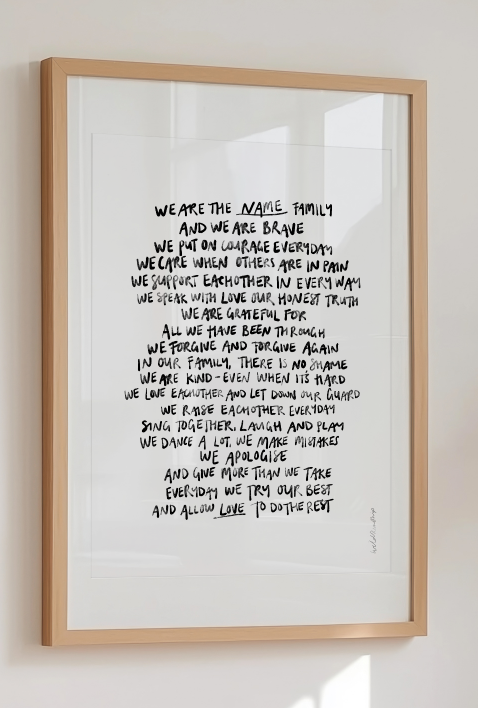 WE ARE THE NAME FAMILY
AND WE ARE BRAVE
WE PUT ON COURAGE EVERYDAY
WE CARE WHEN OTHERS ARE IN PAIN
WE SUPPORT EACHOTHER IN EVERY WAY
WE SPEAK WITH LOVE OUR HONEST TRUTH
WE ARE GRATEFUL FOR
ALL WE HAVE BEEN THROUGH
WE FORGIVE AND FORGIVE AGAIN
IN OUR FAMILY, THERE IS NO SHAME
WE ARE KIND - EVEN WHEN IT'S HARD
WE LOVE EACHOTHER AND LET DOWN OUR GUARD
WE RAISE EACHOTHER EVERYDAY
SING TOGETHER, LAUGH AND PLAY
WE DANCE A LOT, WE MAKE MISTAKES
WE APOLOGISE
AND GIVE MORE THAN WE TAKE
EVERYDAY WE TRY OUR BEST
AND ALLOW LOVE TO DO THE REST